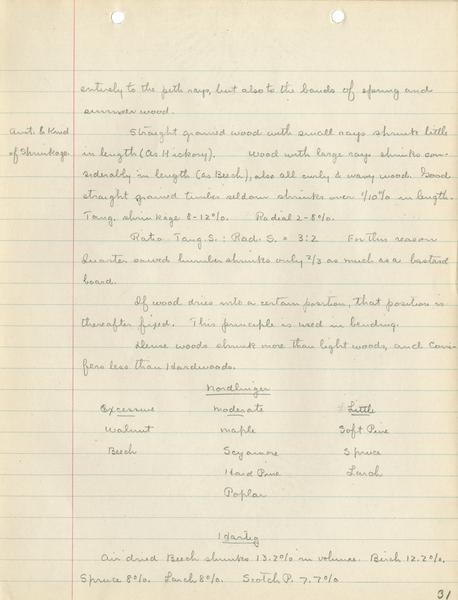 entirely to the pith rays, but also to the bands of spring and
summer wood.
Amt. & Kind
of Shrinkage.
Straight grained wood with small rays shrink little
in length (as Hickory). Wood with large rays shrinks con-
siderably in length (as Beech), also all curly & wavy wood. Good
straight grained timber seldom shrinks over 1/10% in length.
Tang. shrinkage 8-12%. Radial 2-8%.
Ratio Tang. S. : Rad. S. = 3:2 For this reason
Quarter sawed lumber shrinks only 2/3 as much as a bastard
board.
If wood dries into a certain position, that position is
thereafter fixed. This principle is used in bending.
Dense woods shrink more than light woods, and Coni-
fers less than Hardwoods.
Nordlinger
Excessive moderate Little
Walnut maple Soft Pine
Beech Scyamore Spruce
Hard Pine Larch
Poplar
Hartig
Air dried Beech shrinks 13.2% in volume. Birch 12.2%.
Spruce 8%. Larch 8%. Scotch P. 7.7%
31